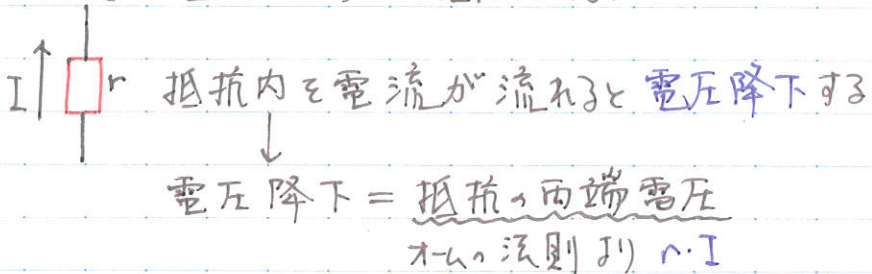 I r 抵抗内を電流が流れると電圧降下する
電圧降下 = 抵抗の両端電圧
オームの法則より r・I